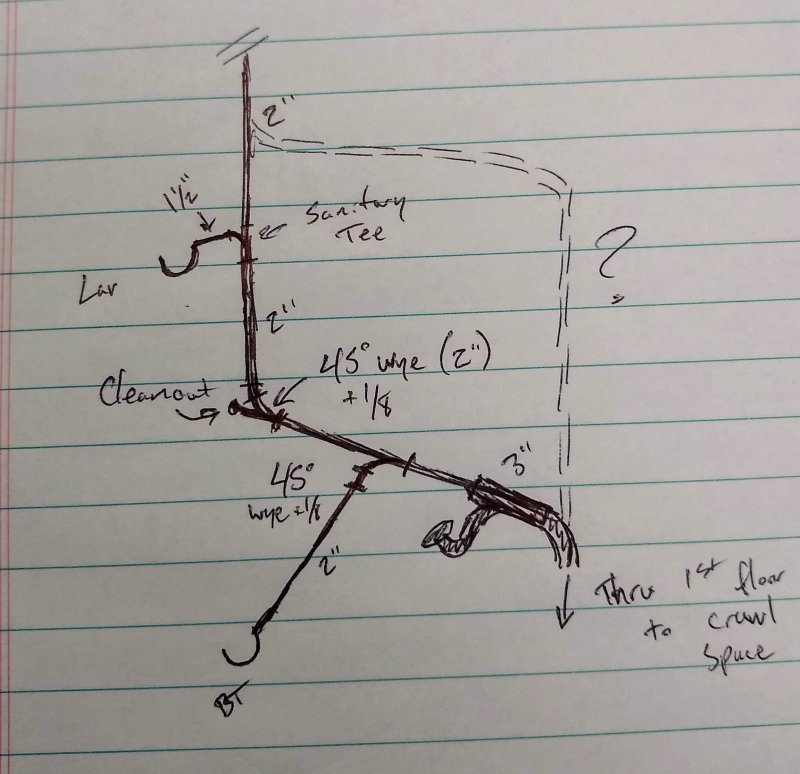 2"
1½"
Sanitary
Tee
Lav
2"
?
45° wye (2")
+1/8
Cleanout
3"
45°
wye +1/8
2"
Thru 1st floor
to crawl
space
BT